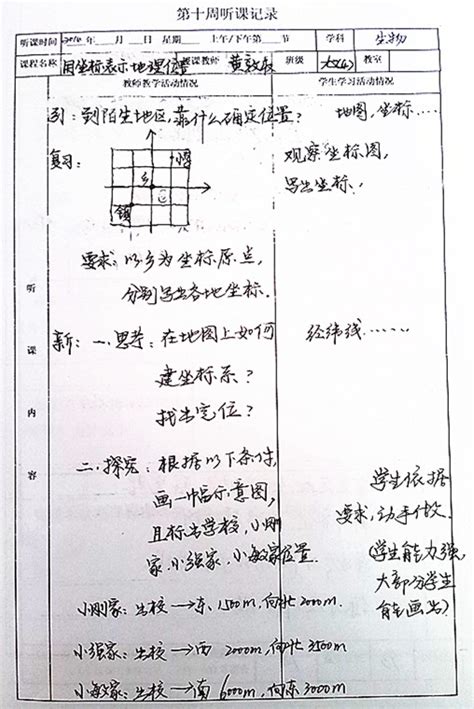 第十周听课记录
听课时间 年 月 日 星期 上午/下午第 节 学科 生物
课程名称 用坐标表示地理位置 授课教师 班级 教室
教师教学活动情况 学生学习活动情况
引: 到陌生地区,靠什么确定位置? 地图,坐标……
复习: 观察坐标图,
写出坐标.
乡
镇
要求: 以乡为坐标原点,
分别写出各地坐标.
听课内容
新: 一.思考: 在地图上如何 经纬线……
建坐标系?
找出定位?
二.探究: 根据以下条件, 学生依据
画一幅示意图, 要求,动手做.
且标出学校,小刚
家.小强家,小敏家位置. (学生能力强,
大部分学生
能画出)
小刚家: 出校→东1500m,向北2000m.
小强家: 出校→西 2000m,向北3500m
小敏家: 出校→南6000m,向东3000m